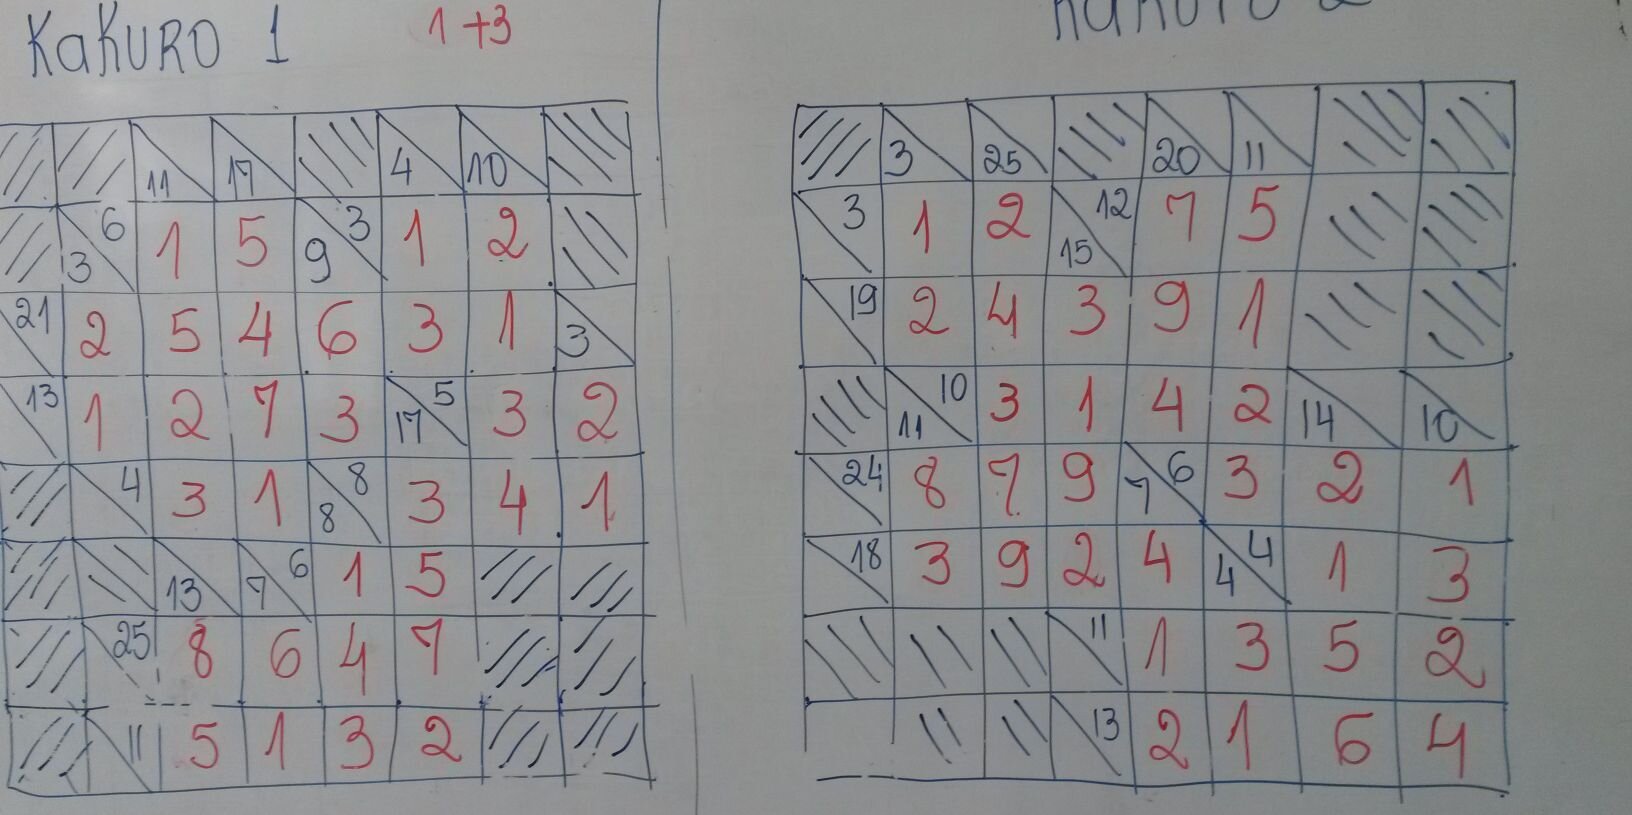 KAKURO 1 1+3
KAKURO 2
11 17 4 10
6 3 1 5 3 9 1 2
21 2 5 4 6 3 1 3
13 1 2 7 3 5 17 3 2
4 3 1 8 8 3 4 1
13 6 7 1 5
25 8 6 4 7
11 5 1 3 2
3 25 20 11
3 1 2 12 15 7 5
19 2 4 3 9 1
10 11 3 1 4 2 14 10
24 8 7 9 6 7 3 2 1
18 3 9 2 4 4 4 1 3
11 1 3 5 2
13 2 1 6 4